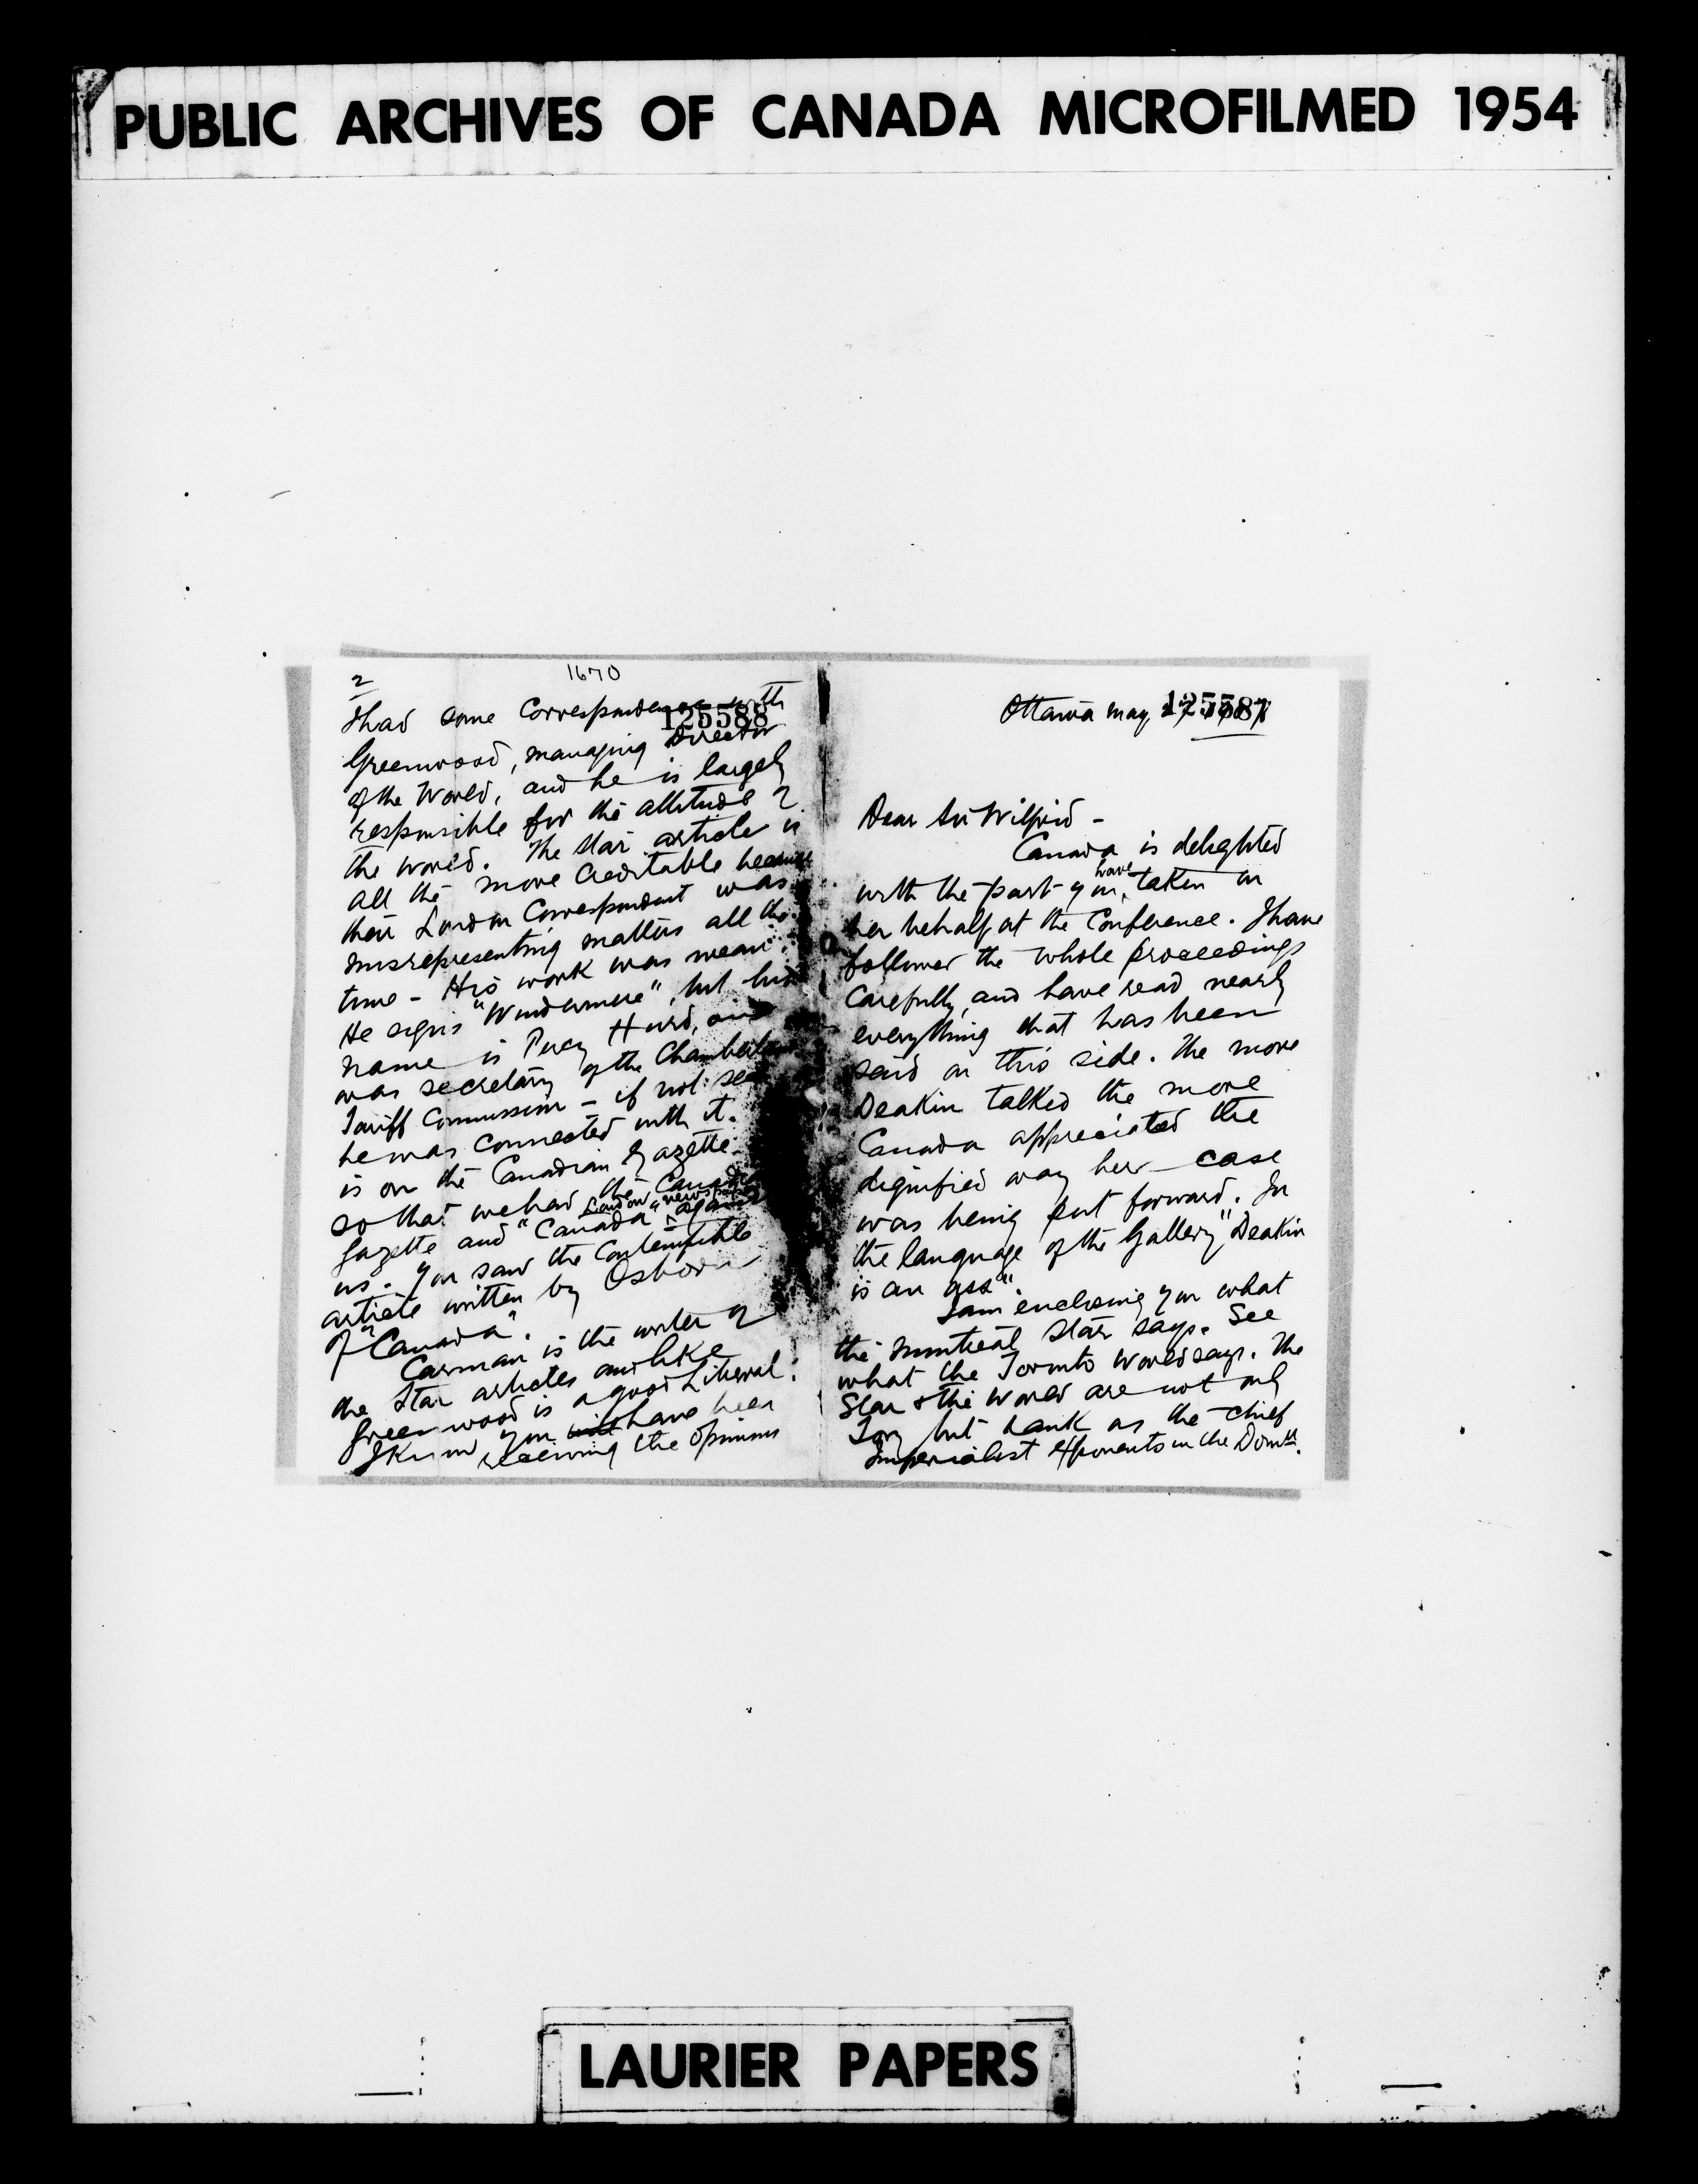 PUBLIC ARCHIVES OF CANADA MICROFILMED 1954
1670
2
I had some Correspondence with
125588
Greenwood, managing Director
of the World, and he is largely
responsible for the attitude of
the World. The Star article is
all the more Creditable because
their London Correspondent was
misrepresenting matters all the
time - His work was mean.
He signs "Windermere", but his
name is Percy Hurd, and
was secretary of the Chamberlain
Tariff Commission - if not sec
he was connected with it.
is on the Canadian Gazette
so that we had the Canadian
London newspapers
Gazette and "Canada" against
us. You saw the Contemptible
article written by Osborn
of "Canada".
Carman is the writer of
the Star articles and like
Greenwood is a good Liberal.
I know you will have been
receiving the opinions
Ottawa May 125587
Dear Sir Wilfrid -
Canada is delighted
have
with the part you taken in
her behalf at the Conference. I have
followed the whole proceedings
Carefully, and have read nearly
everything that has been
said on this side. The more
Deakin talked the more
Canada appreciated the
dignified way her case
was being put forward. In
the language of the Gallery "Deakin
is an ass".
I am enclosing you what
the Montreal Star says. See
what the Toronto World says. The
Star & the World are not only
Tory but rank as the chief
Imperialist exponents in the Domn.
LAURIER PAPERS